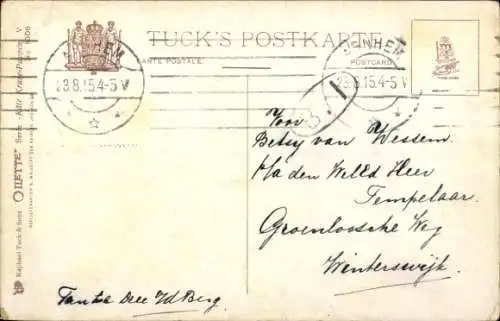 TUCK'S POSTKARTE
CARTE POSTALE
POSTCARD
ARNHEM
23.8.15.4-5 V
ARNHEM
23.8.15.4-5 V
B
Voor
Betsy van Wessem.
p/a den WelEd Heer
Tempelaar.
Groenloosche Weg
Winterswijk.
Tante Dee v/d Berg
Raphael Tuck & Sons "OILETTE" Serie